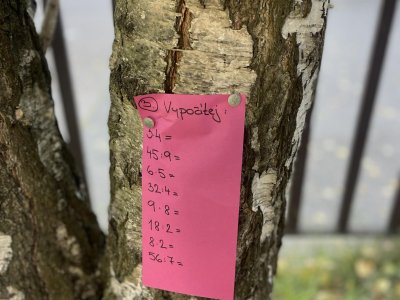 Vypočítej:
3·4=
45:9=
6·5=
32:4=
9·8=
18:2=
8·2=
56:7=